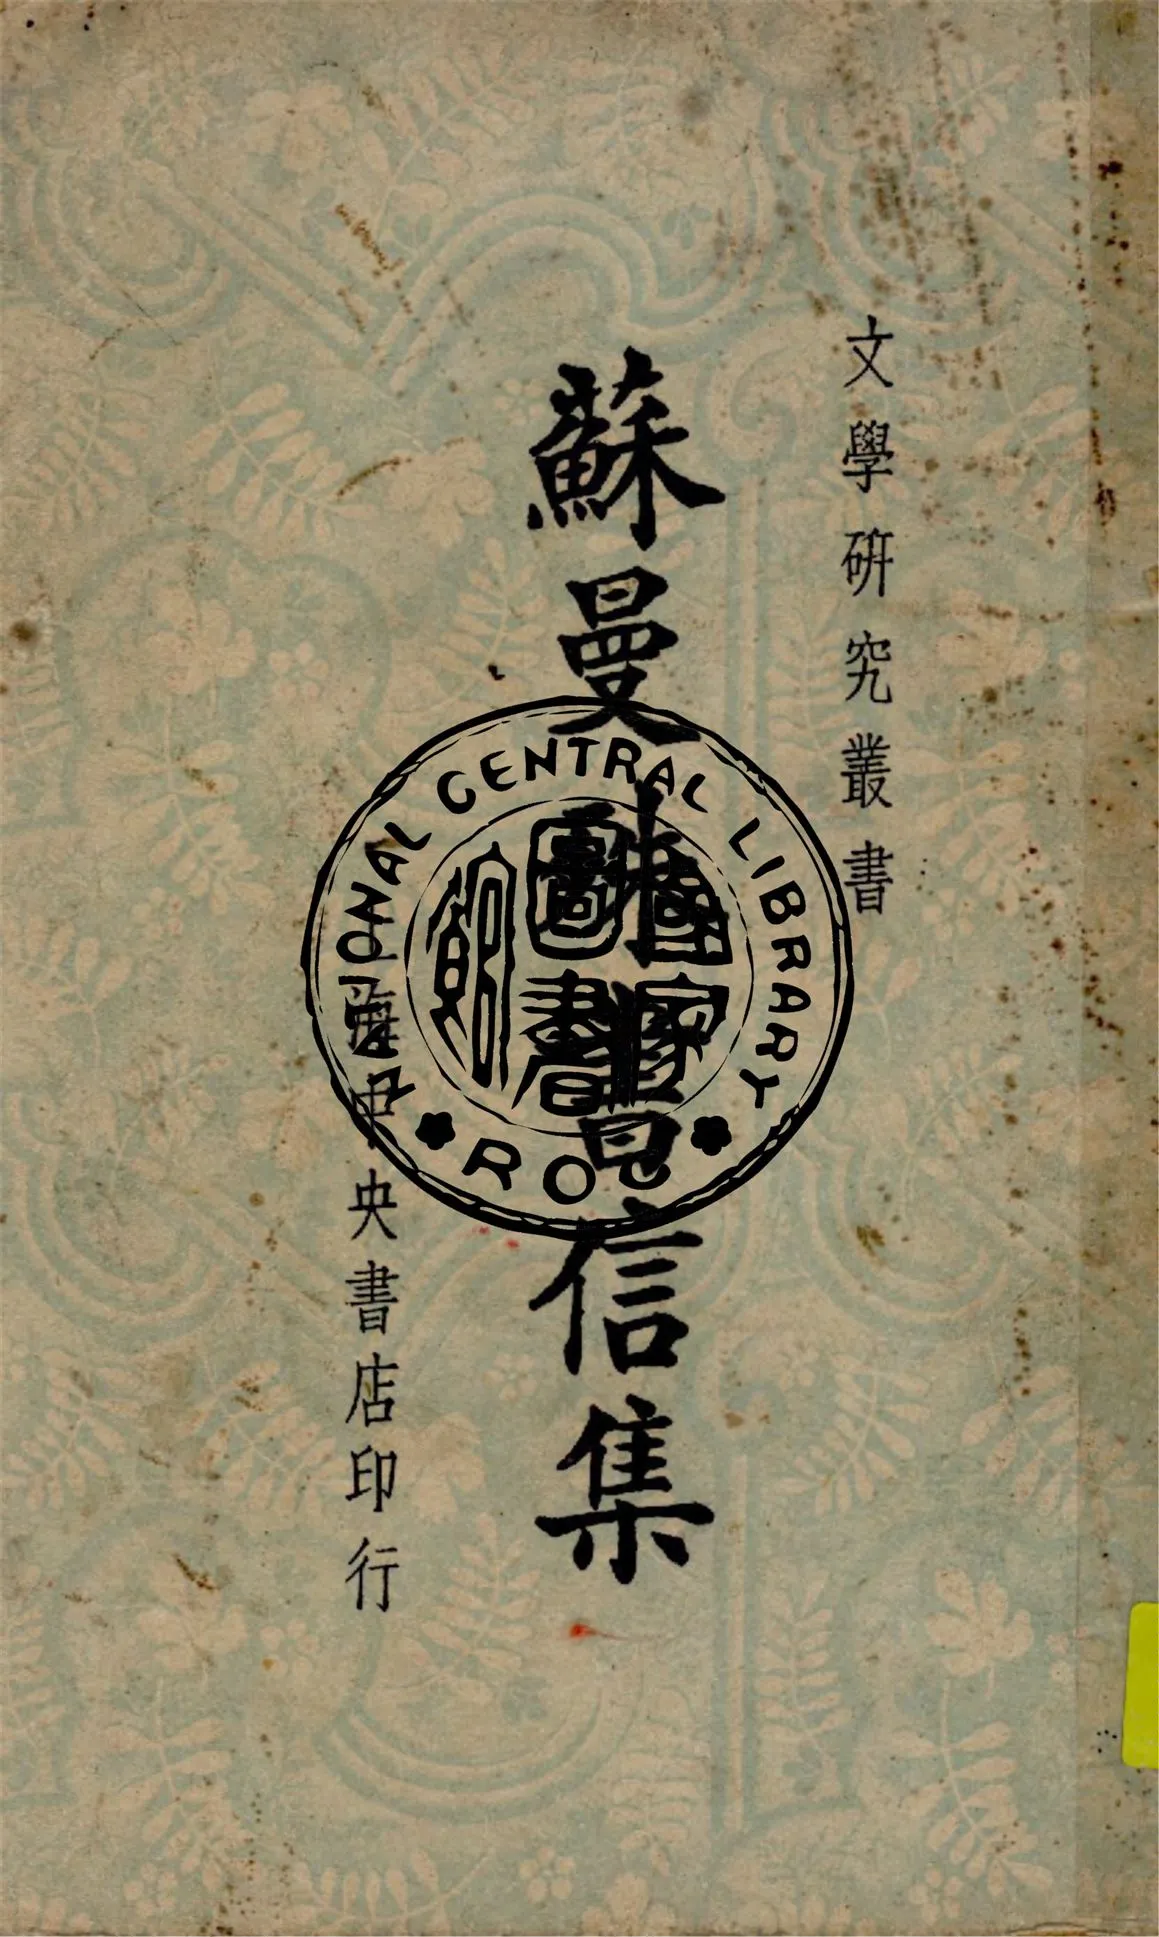 文學研究叢書
蘇曼殊書信集
上海中央書店印行
NATIONAL CENTRAL LIBRARY
國家
圖書
館
ROC